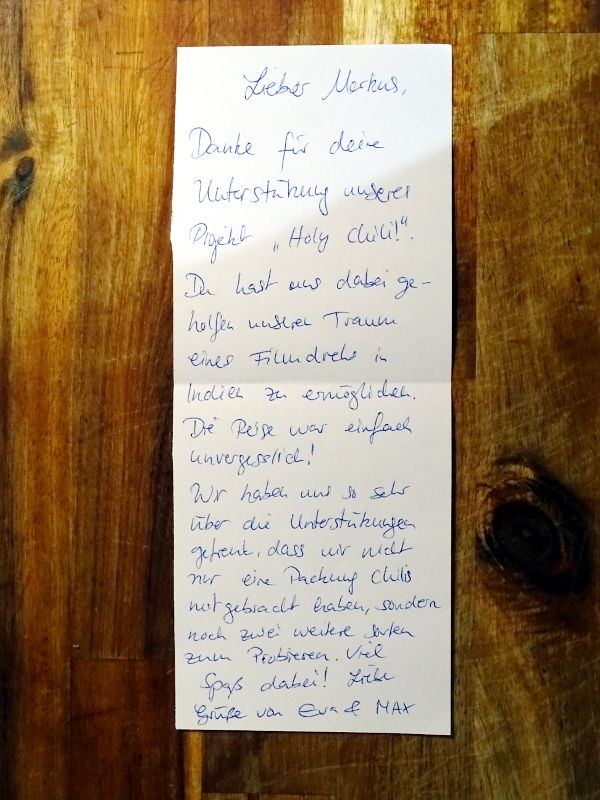 Lieber Markus,
Danke für deine
Unterstützung unseres
Projekt „Holy Chili!".
Du hast uns dabei ge-
holfen unseren Traum
eines Filmdrehs in
Indien zu ermöglichen.
Die Reise war einfach
unvergesslich!
Wir haben uns so sehr
über die Unterstützungen
gefreut, dass wir nicht
nur eine Packung Chilis
mitgebracht haben, sondern
noch zwei weitere Sorten
zum Probieren. Viel
Spaß dabei! Liebe
Grüße von Eva & MAX